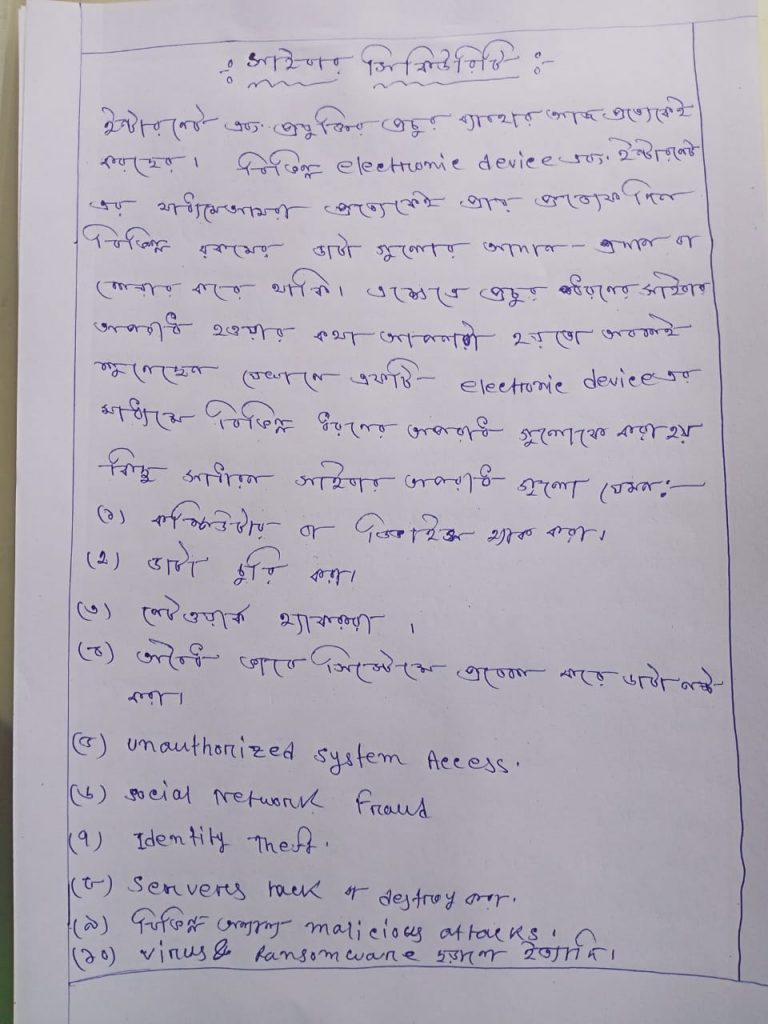 ঃ সাইবার সিকিউরিটি ঃ-
ইন্টারনেট এবং প্রযুক্তির প্রচুর ব্যবহার আজ প্রত্যেকেই
করছেন। বিভিন্ন electronic device এবং ইন্টারনেট
এর মাধ্যমে আমরা প্রত্যেকেই প্রায় প্রত্যেক দিন
বিভিন্ন রকমের ডাটা গুলোর আদান - প্রদান বা
শেয়ার করে থাকি। এক্ষেত্রে প্রচুর ধরনের সাইবার
অপরাধ হওয়ার কথা আপনারা হয়তো অবশ্যই
শুনেছেন যেখানে একটি electronic device এর
মাধ্যমে বিভিন্ন ধরনের অপরাধ গুলোকে করা হয়
কিছু সাধারন সাইবার অপরাধ গুলো যেমন:-
(১) কম্পিউটার বা ডিভাইস হ্যাক করা।
(২) ডাটা চুরি করা।
(৩) নেটওয়ার্ক হ্যাক করা ।
(৪) অবৈধ ভাবে সিস্টেমে প্রবেশ করে ডাটা নষ্ট
করা।
(৫) unauthorized system Access.
(৬) social Network Fraud
(৭) Identity Theft.
(৮) Servers hack বা destroy করা.
(৯) বিভিন্ন অন্যান্য malicious attacks.
(১০) virus & Ransomware ছড়ানো ইত্যাদি।